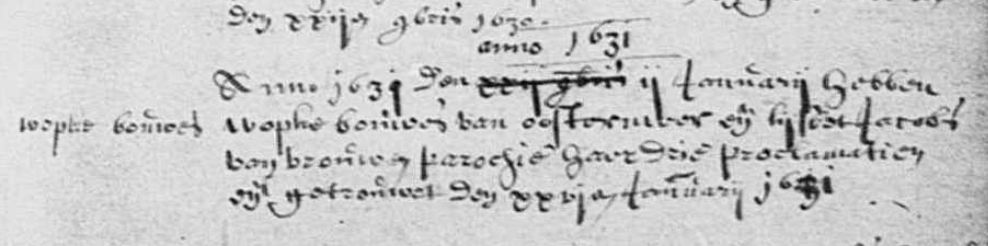 den xxijen 9bris 1630.
anno 1631
Anno 1631 den xxij 9bris ij Januarij hebben
wopke bouwes wopke bouwes van oostermeer eñ lijsbet Jacobs
van brouwer parochie haer drie proclamatien
eñ getrouwet den xxvien Januarij 1631